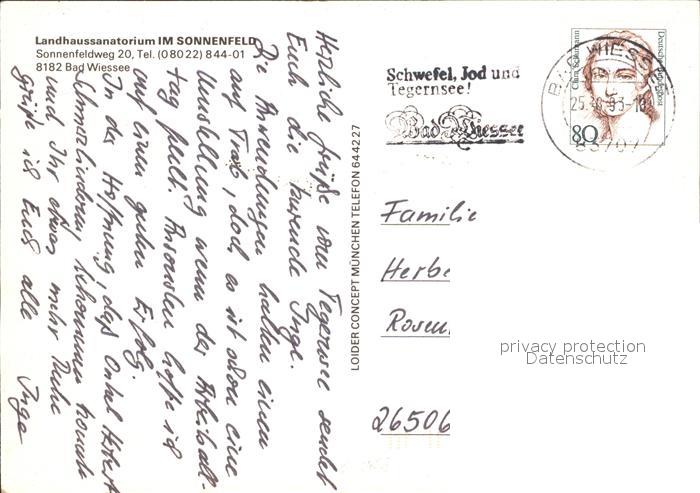 Landhaussanatorium IM SONNENFELD
Sonnenfeldweg 20, Tel. (08022) 844-01
8182 Bad Wiessee
Herzliche Grüße vom Tegernsee sendet
Euch die kurende Inge.
Die Anwendungen halten einen
auf Trab, doch es ist schon eine
Umstellung wenn der Arbeitsall-
tag fehlt. Ansonsten hoffe ich
auf einen guten Erfolg.
In der Hoffnung, das Onkel Herbert
Schmerzlinderung bekommen konnte
und Ihr etwas mehr Ruhe
grüße ich Euch alle Inge
LOIDER CONCEPT MÜNCHEN TELEFON 644227
Schwefel, Jod und
Tegernsee!
Bad Wiessee
BAD WIESSEE
25.10.93-18
83707
Clara Schumann
Deutsche Bundespost
80
Familie
Herbe
Rosen
26506
privacy protection
Datenschutz